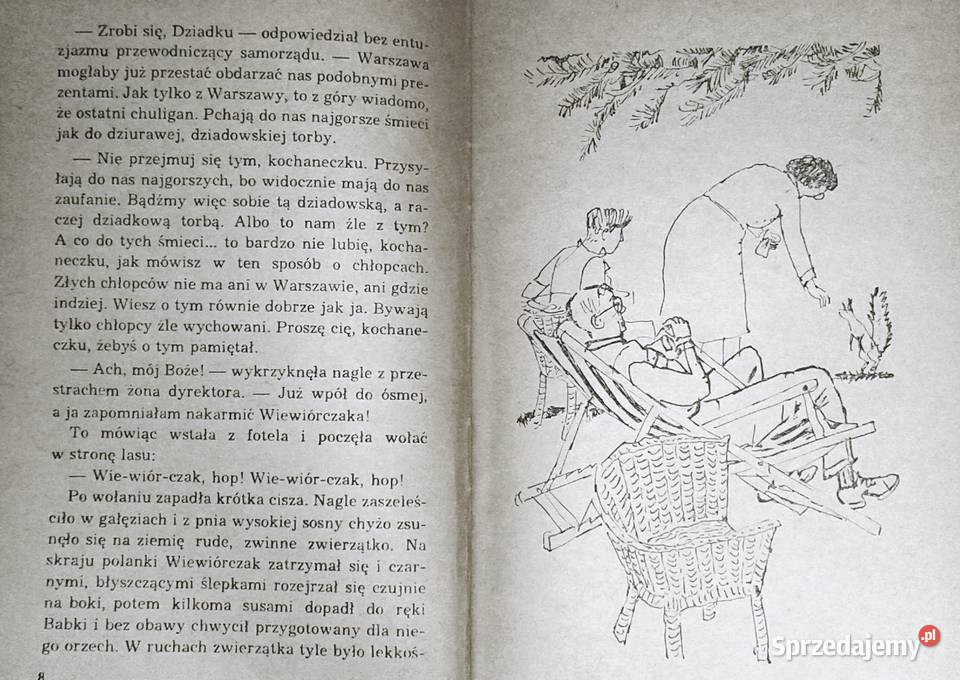 — Zrobi się, Dziadku — odpowiedział bez entu-
zjazmu przewodniczący samorządu. — Warszawa
mogłaby już przestać obdarzać nas podobnymi pre-
zentami. Jak tylko z Warszawy, to z góry wiadomo,
że ostatni chuligan. Pchają do nas najgorsze śmieci
jak do dziurawej, dziadowskiej torby.
— Nie przejmuj się tym, kochaneczku. Przysy-
łają do nas najgorszych, bo widocznie mają do nas
zaufanie. Bądźmy więc sobie tą dziadowską, a ra-
czej dziadkową torbą. Albo to nam źle z tym?
A co do tych śmieci... to bardzo nie lubię, kocha-
neczku, jak mówisz w ten sposób o chłopcach.
Złych chłopców nie ma ani w Warszawie, ani gdzie
indziej. Wiesz o tym równie dobrze jak ja. Bywają
tylko chłopcy źle wychowani. Proszę cię, kochane-
czku, żebyś o tym pamiętał.
— Ach, mój Boże! — wykrzyknęła nagle z prze-
strachem żona dyrektora. — Już wpół do ósmej,
a ja zapomniałam nakarmić Wiewiórczaka!
To mówiąc wstała z fotela i poczęła wołać
w stronę lasu:
— Wie-wiór-czak, hop! Wie-wiór-czak, hop!
Po wołaniu zapadła krótka cisza. Nagle zaszeleś-
ciło w gałęziach i z pnia wysokiej sosny chyżo zsu-
nęło się na ziemię rude, zwinne zwierzątko. Na
skraju polanki Wiewiórczak zatrzymał się i czar-
nymi, błyszczącymi ślepkami rozejrzał się czujnie
na boki, potem kilkoma susami dopadł do ręki
Babki i bez obawy chwycił przygotowany dla nie-
go orzech. W ruchach zwierzątka tyle było lekkoś-
8
Sprzedajemy.pl